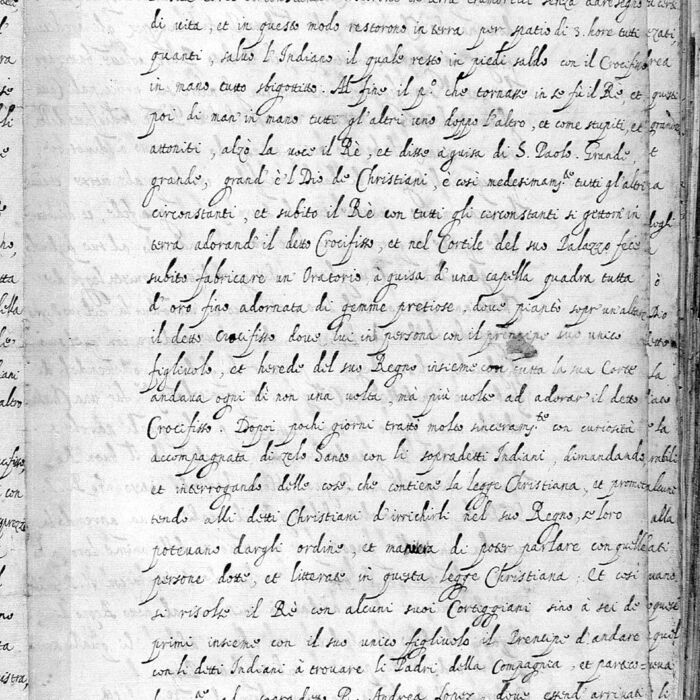 di vita, et in questo modo restorono in terra per spatio di 3. hore tutti
quanti, salvo l'Indiano il quale resto in piedi saldo con il Crocifisso
in mano tutto sbigottito. Al fine il p.º che tornasse in se fù il Rè, et
poi di man' in mano tutti gl'altri uno doppo l'altro, et come stupiti, et
attoniti, alzò la voce il Rè, et disse à guisa di S. Paolo. Grande,
grande, grand' è l Dio de Christiani, è così medesimam.te tutti gl'altri
circonstanti, et subito il Rè con tutti gli circonstanti si gettorn' in
terra adorand' il detto Crocifisso, et nel Cortile del suo Palazzo fece
subito fabricare un' Oratorio à guisa d'una capella quadra tutta
d' oro fino adornata di gemme pretiose, dove pianto sopr' un' altare
il detto Crocifisso dove lui in persona con il prencipe suo unico
figlivolo, et herede del suo Regno insieme con tutta la sua Corte
andava ogni dì non una volta, mà più volte ad adorar il detto
Crocifisso. Dopoi pochi giorni trattò molto sinceram.te con curiosità
accompagnata di zelo Santo con li sopradetti Indiani, dimandando
et interrogando delle cose che contiene la legge Christiana, et promet
tendo alli detti Christiani d'irrichirli nel suo Regno, se loro
potevano dargli ordine, et maniera di poter parlare con quelle
persone dotte, et litterate in questa legge Christiana; Et così
si risolse il Rè con alcuni suoi Corteggiani sino à sei de
primi insieme con il suo unico figlivolo il Prencipe d'andare
con li detti Indiani à trovare li Padri della Compagnia, et
Andrea Lopez, dove essend' arrivati